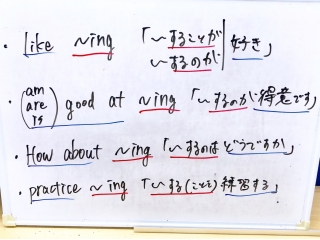 ・like ~ing 「~することが 好き」
~するのが
・(am good at ~ing 「~するのが得意です」
are
is)
・How about ~ing 「~するのはどうですか」
・practice ~ing 「~する(ことを)練習する」